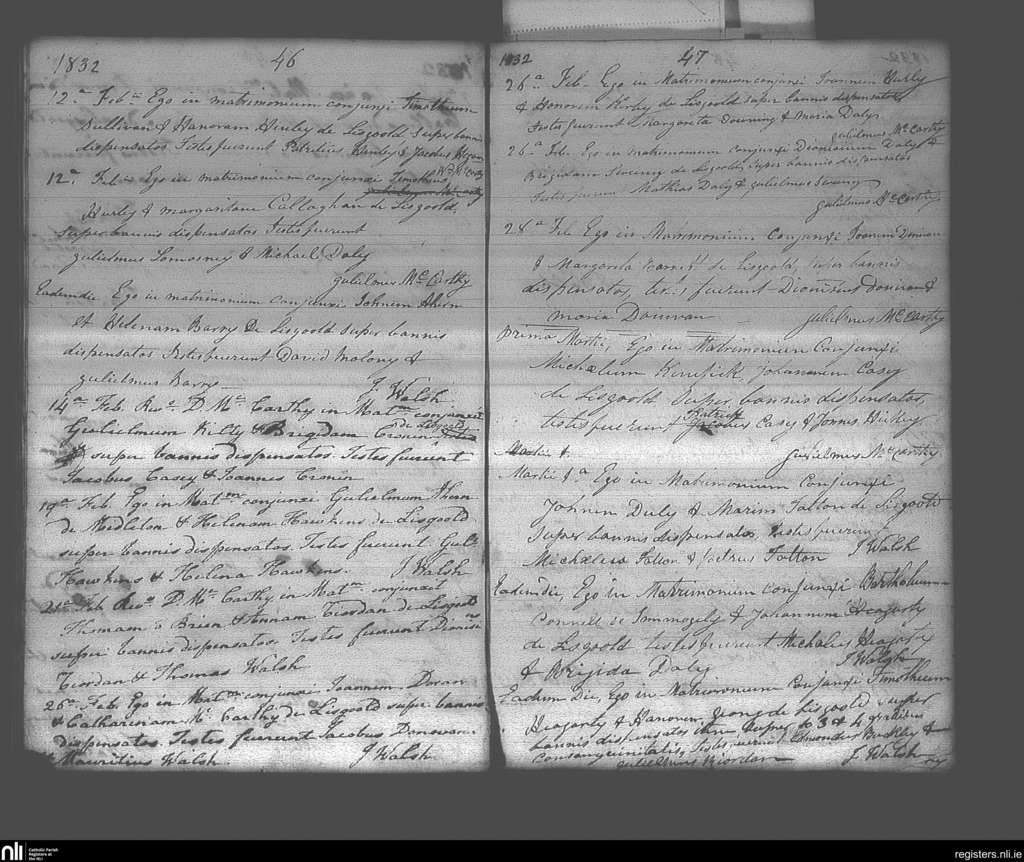 1832 46
12.a Feb.. Ego in matrimonium conjunxi Timotheum
Sullivan & Hanoram Hurley de Lisgoold super bannis
dispensatos Testes fuerunt Patritius & Jacobus
Wm McCarthy
12.a Feb.. Ego in matrimonium conjunxi Timotheus
Hurley & margaritam Callaghan de Lisgoold,
super bannis dispensatos Testes fuerunt
gulielmus Lomasney & Michael Daly
gulielmus McCarthy
Eadem die Ego in matrimonium conjunxi Johnem Ahern
et Helenam Barry De Lisgoold super bannis
dispensatos Testes fuerunt David Molony &
gulielmus Barry
J Walsh
14a Feb. Revd. D. Mc. Carthy in Matm conjunxit
de Lisgoold
Gulielmum Kilty & Brigidam Cronin
super bannis dispensatos. Testes fuerunt
Jacobus Casey & Joannes Cronin
19a Feb. Ego in Matm conjunxi Gulielmum Ahern
de Midleton & Helenam Hawkins de Lisgoold
super bannis dispensatos. Testes fuerunt Guls
Hawkins & Helena Hawkins. J Walsh
21a Feb Revd. D. Mc. Carthy in Matm conjunxit
Thomam o Brien & Annam Riordan de Lisgoold
super bannis dispensatos. Testes fuerunt Dionisius
Riordan & Thomas Walsh
26a Feb. Ego in Matm conjunxi Joannem Doran
& Catharinam Mc. Carthy de Lisgoold super bannis
dispensatos. Testes fuerunt Jacobus Donovan
& Mauritius Walsh. J Walsh
1832 47
26a Feb. Ego in Matrimonium conjunxi Joannem Hurly
& Honorem Kirby de Lisgoold super bannis dispensatos
Testes fuerunt Margareta Downing & Maria Daly
gulielmus McCarthy
26a Feb. Ego in matrimonium conjunxi Dionisium Daly &
Brigidam de Lisgoold, super bannis dispensatos
Testes fuerunt Mathias Daly & gulielmus
gulielmus McCarthy
28a Feb Ego in Matrimonium Conjunxi Joannem
& Margarita de Lisgoold, super bannis
dispensatos, testes fuerunt Dionisius Donovan &
Maria Donovan gulielmus McCarthy
Primo Martii, Ego in Matrimonium Conjunxi
Michaelum Kenefick, Johannem Casey
de Lisgoold super bannis dispensatos,
Patrick
testes fuerunt Jacobus Casey & Joannes Hickey
gulielmus McCarthy
Martii &
Martii &a Ego in Matrimonium Conjunxi
Johnem Duly & Mariam Fallon de Lisgoold
super bannis dispensatos, testes fuerunt
Michaelus Fallon & Petrus Fallon J Walsh
Eadem die, Ego in Matrimonium conjunxi Bartholum
Connell de Immogely & Johannem Heagarty
de Lisgoold testes fuerunt Michaelus Heagarty
& Brigida Daly J Walsh
Eadem Die, Ego in Matrimonium Conjunxi Timotheum
Heagarty & Hanorem, de Lisgoold super
bannis dispensatos super 3 & 4 gradibus
Consanguinitatis, Testes fuerunt Edmondus Buckley &
gulielmus Riordan J Walsh
nli Catholic Parish
Registers at
the NLI
registers.nli.ie